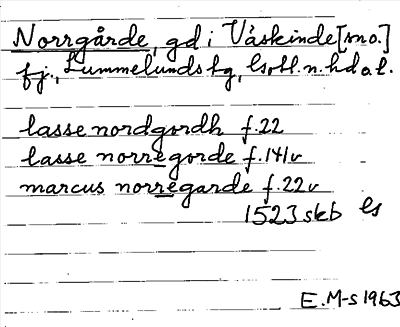 Norrgårde, gd i Väskinde [sno.]
fj., Lummelunds tg, Gotl. n. hd o. l.
lasse nordgordh f. 22
lasse norregorde f. 141v
marcus norregarde f. 22v
1523 skb ls
E. M-s 1963